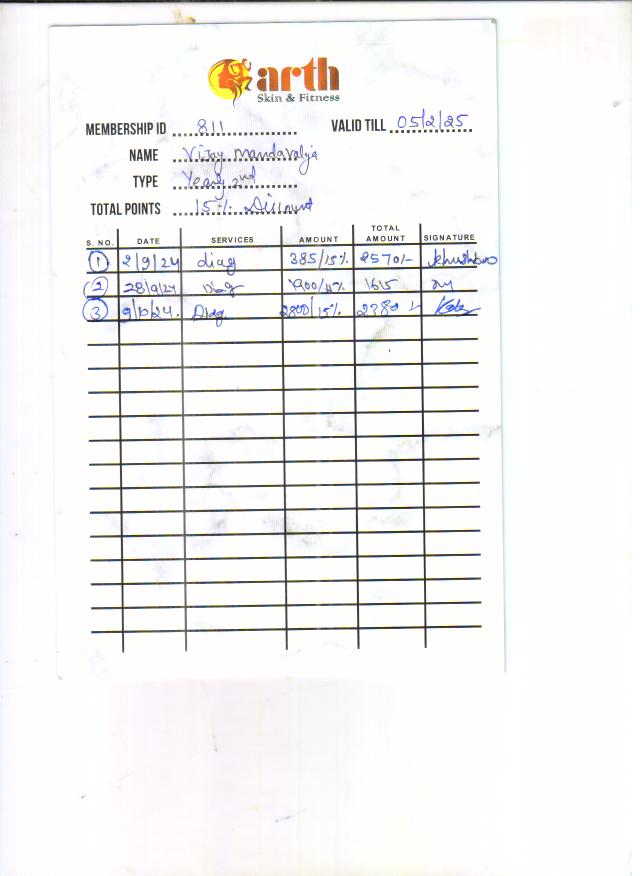 arth
Skin & Fitness
MEMBERSHIP ID 811 VALID TILL 05/2/25
NAME Vijay Mandavalja
TYPE Yearly 2nd
TOTAL POINTS 15% Discount
S. NO. DATE SERVICES AMOUNT TOTAL AMOUNT SIGNATURE
1 2/9/24 diag 385/15% 2570/- khushboo
2 28/9/24 1900/15% 1615
3 9/10/24. Diag. 2800/15% 2380